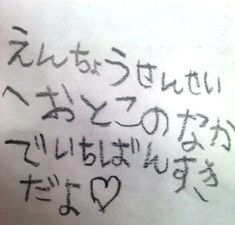 えんちょうせんせい
へおとこのなか
でいちばんすき
だよ♡